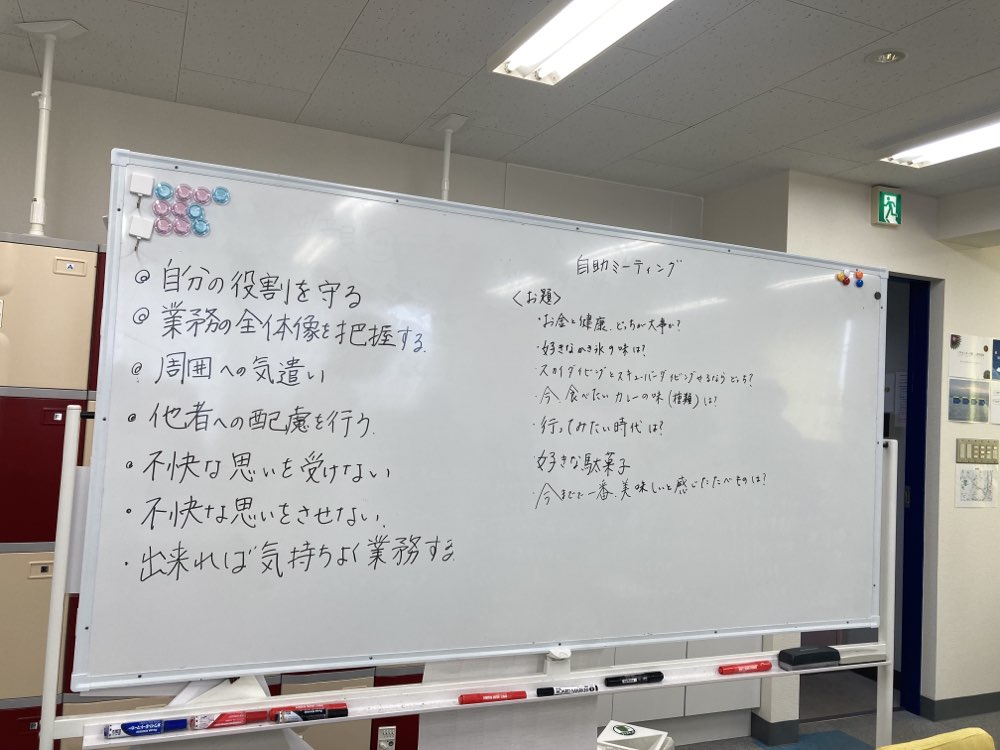 ◎ 自分の役割を守る
◎ 業務の全体像を把握する.
◎ 周囲への気遣い
・他者への配慮を行う.
・不快な思いを受けない
・不快な思いをさせない.
・出来れば気持ちよく業務する.
自助ミーティング
〈お題〉
・お金と健康、どっちが大事か?
・好きなかき氷の味は?
・スカイダイビングとスキューバーダイビングやるならどっち?
・今食べたいカレーの味(種類)は?
・行ってみたい時代は?
・好きな駄菓子
・今までで一番、美味しいと感じたたべものは?